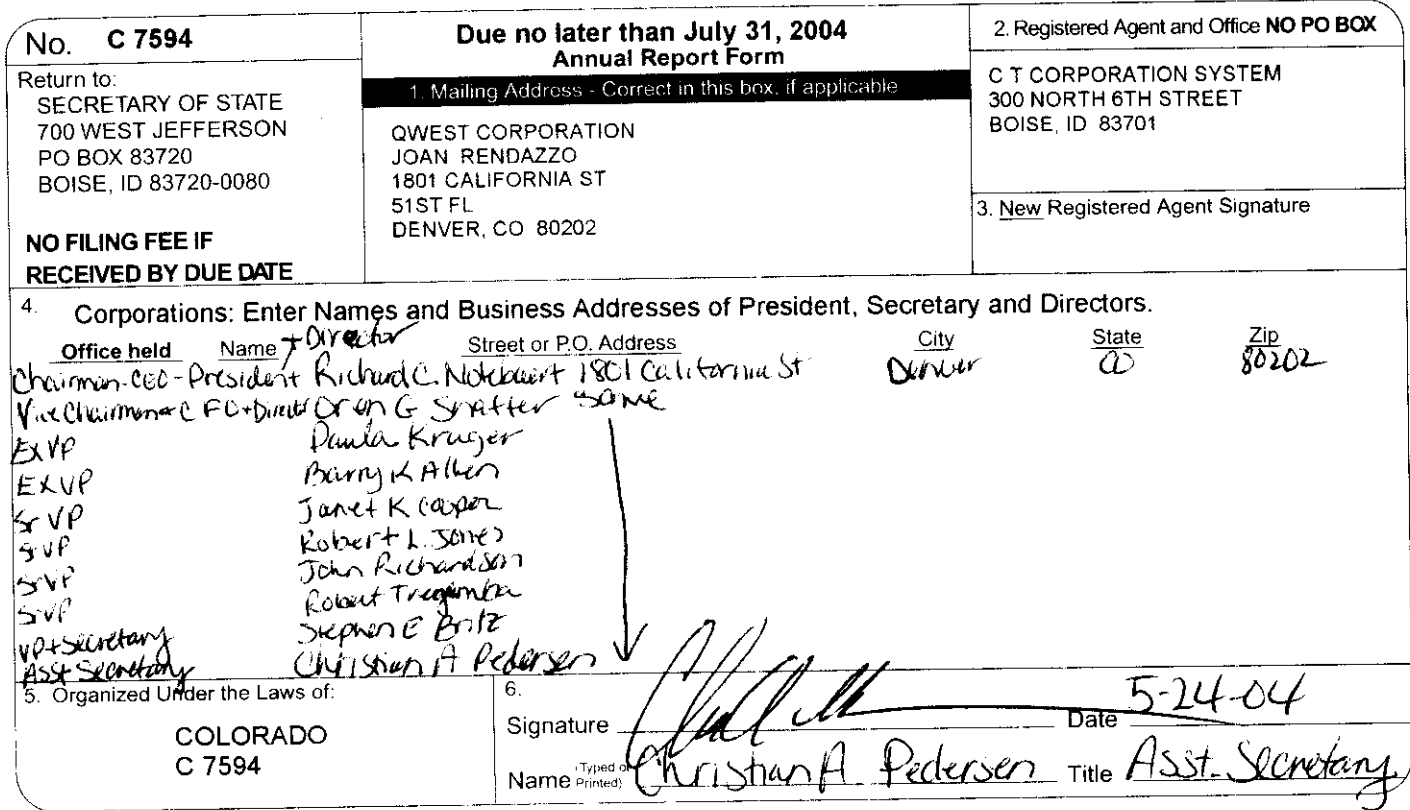 No. C 7594
Return to:
SECRETARY OF STATE
700 WEST JEFFERSON
PO BOX 83720
BOISE, ID 83720-0080
NO FILING FEE IF
RECEIVED BY DUE DATE
Due no later than July 31, 2004
Annual Report Form
1. Mailing Address - Correct in this box, if applicable
QWEST CORPORATION
JOAN RENDAZZO
1801 CALIFORNIA ST
51ST FL
DENVER, CO 80202
2. Registered Agent and Office NO PO BOX
C T CORPORATION SYSTEM
300 NORTH 6TH STREET
BOISE, ID 83701
3. New Registered Agent Signature
4. Corporations: Enter Names and Business Addresses of President, Secretary and Directors.
Office held Name Street or P.O. Address City State Zip
+ Director
Chairman-CEO-President Richard C. Notebaert 1801 California St Denver CO 80202
Vice Chairman+CFO+Director Oren G Shaffer SAME
Ex VP Paula Kruger
EX VP Barry K Allen
Sr VP Janet K Cooper
Sr VP Robert L. Jones
Sr VP John Richardson
Sr VP Robert Tregemba
VP+Secretary Stephen E Britz
Asst Secretary Christian A Pedersen
5. Organized Under the Laws of:
COLORADO
C 7594
6.
Signature Date 5-24-04
Name (Typed or Printed) Christian A. Pedersen Title Asst. Secretary